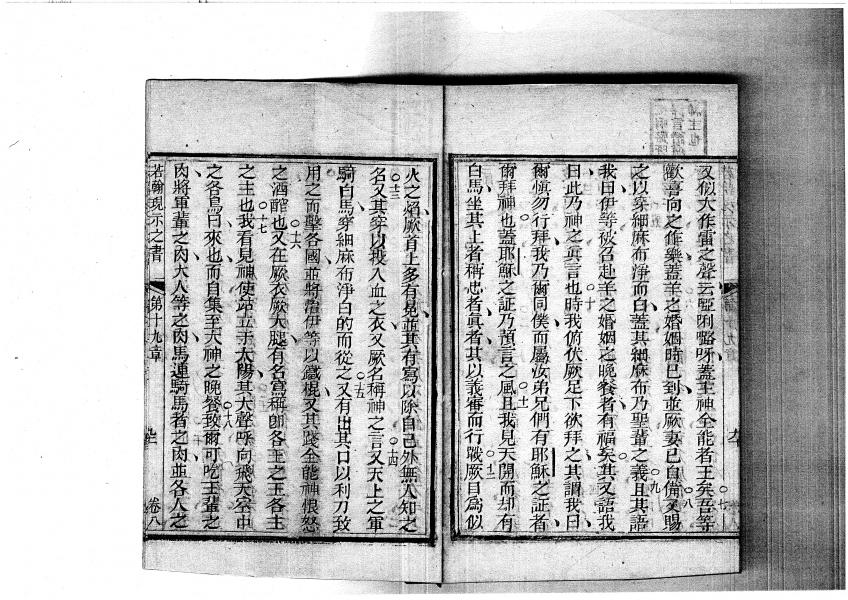 又似大作雷之聲云啞唎嚕呀蓋主神全能者王矣吾等
歡喜向之作樂蓋羊之婚姻時已到並厥妻已自備又賜
之以穿細麻布淨而白蓋其細麻布乃聖輩之義且其語
我曰伊等被召赴羊之婚姻之晚餐者有福矣其又謂我
曰此乃神之真言也時我俯伏厥足下欲拜之其謂我曰
爾慎勿行拜我乃爾同僕而屬汝弟兄們有耶穌之証者
爾拜神也蓋耶穌之証乃預言之風且我見天開而却有
白馬坐其上者稱忠者真者其以義審而行戰厥目為似
火之焰厥首上多有冕並其有寫以除自己外無人知之
名又其穿以投入血之衣又厥名稱神之言又天上之軍
騎白馬穿細麻布淨白的而從之又有出其口以利刀致
用之而擊各國並將治伊等以鐵棍又其踐全能神恨怒
之酒醡也又在厥衣厥大腿有名寫稱即各主之王各主
之主也我看見神使站立于太陽其大聲呼向飛天空中
之各鳥曰來也而自集至大神之晚餐致爾可吃王輩之
肉將軍輩之肉大人等之肉馬連騎馬者之肉並各人之
若翰現示之書 第十九章 卷八